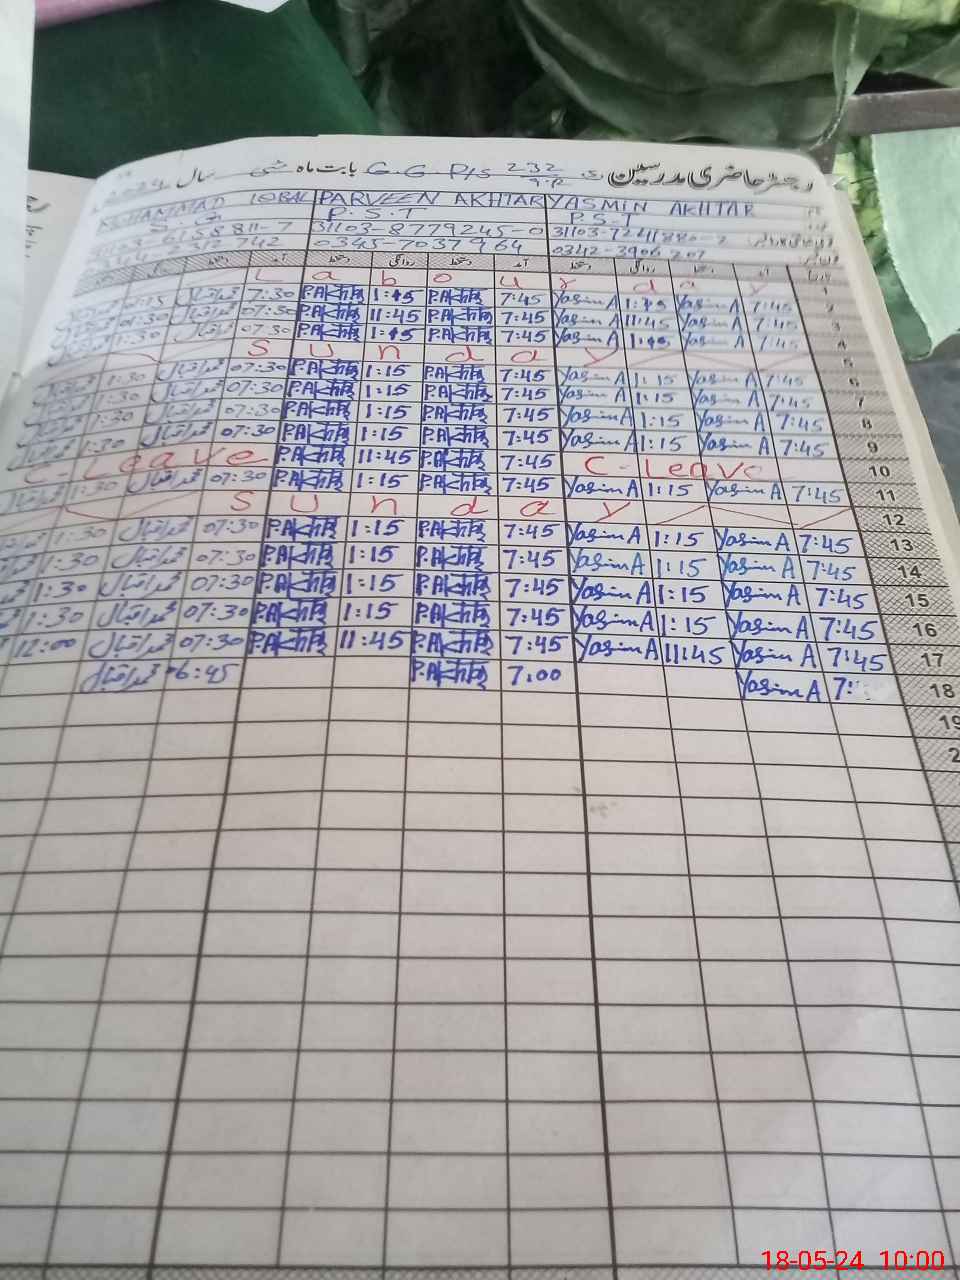 رجسٹر حاضری مدرسین G.G P/S 232/9.R بابت ماہ مئی سال
MUHAMMAD IQBAL PARVEEN AKHTAR YASMIN AKHTAR
P.S.T P.S.T
31103-8779245-0 31103-7241880-2
0345-7037964 0342-3906207
آمد دستخط روانگی دستخط آمد دستخط روانگی دستخط
Labour day 1
محمد اقبال 7:30 P.Akhtar 1:15 P.Akhtar 7:45 Yasim A 1:15 Yasim A 7:45 2
محمد اقبال 07:30 P.Akhtar 11:45 P.Akhtar 7:45 Yasim A 11:45 Yasim A 7:45 3
محمد اقبال 07:30 P.Akhtar 1:15 P.Akhtar 7:45 Yasim A 1:15 Yasim A 7:45 4
Sunday 5
1:30 محمد اقبال 07:30 P.Akhtar 1:15 P.Akhtar 7:45 Yasim A 1:15 Yasim A 7:45 6
1:30 محمد اقبال 07:30 P.Akhtar 1:15 P.Akhtar 7:45 Yasim A 1:15 Yasim A 7:45 7
1:30 محمد اقبال 07:30 P.Akhtar 1:15 P.Akhtar 7:45 Yasim A 1:15 Yasim A 7:45 8
1:30 محمد اقبال 07:30 P.Akhtar 1:15 P.Akhtar 7:45 Yasim A 1:15 Yasim A 7:45 9
C Leave P.Akhtar 11:45 P.Akhtar 7:45 C-Leave 10
1:30 محمد اقبال 07:30 P.Akhtar 1:15 P.Akhtar 7:45 Yasim A 1:15 Yasim A 7:45 11
Sunday 12
1:30 محمد اقبال 07:30 P.Akhtar 1:15 P.Akhtar 7:45 Yasim A 1:15 Yasim A 7:45 13
1:30 محمد اقبال 07:30 P.Akhtar 1:15 P.Akhtar 7:45 Yasim A 1:15 Yasim A 7:45 14
1:30 محمد اقبال 07:30 P.Akhtar 1:15 P.Akhtar 7:45 Yasim A 1:15 Yasim A 7:45 15
1:30 محمد اقبال 07:30 P.Akhtar 1:15 P.Akhtar 7:45 Yasim A 1:15 Yasim A 7:45 16
12:00 محمد اقبال 07:30 P.Akhtar 11:45 P.Akhtar 7:45 Yasim A 11:45 Yasim A 7:45 17
محمد اقبال 06:45 P.Akhtar 7:00 Yasim A 7: 18
19
2
18-05-24 10:00